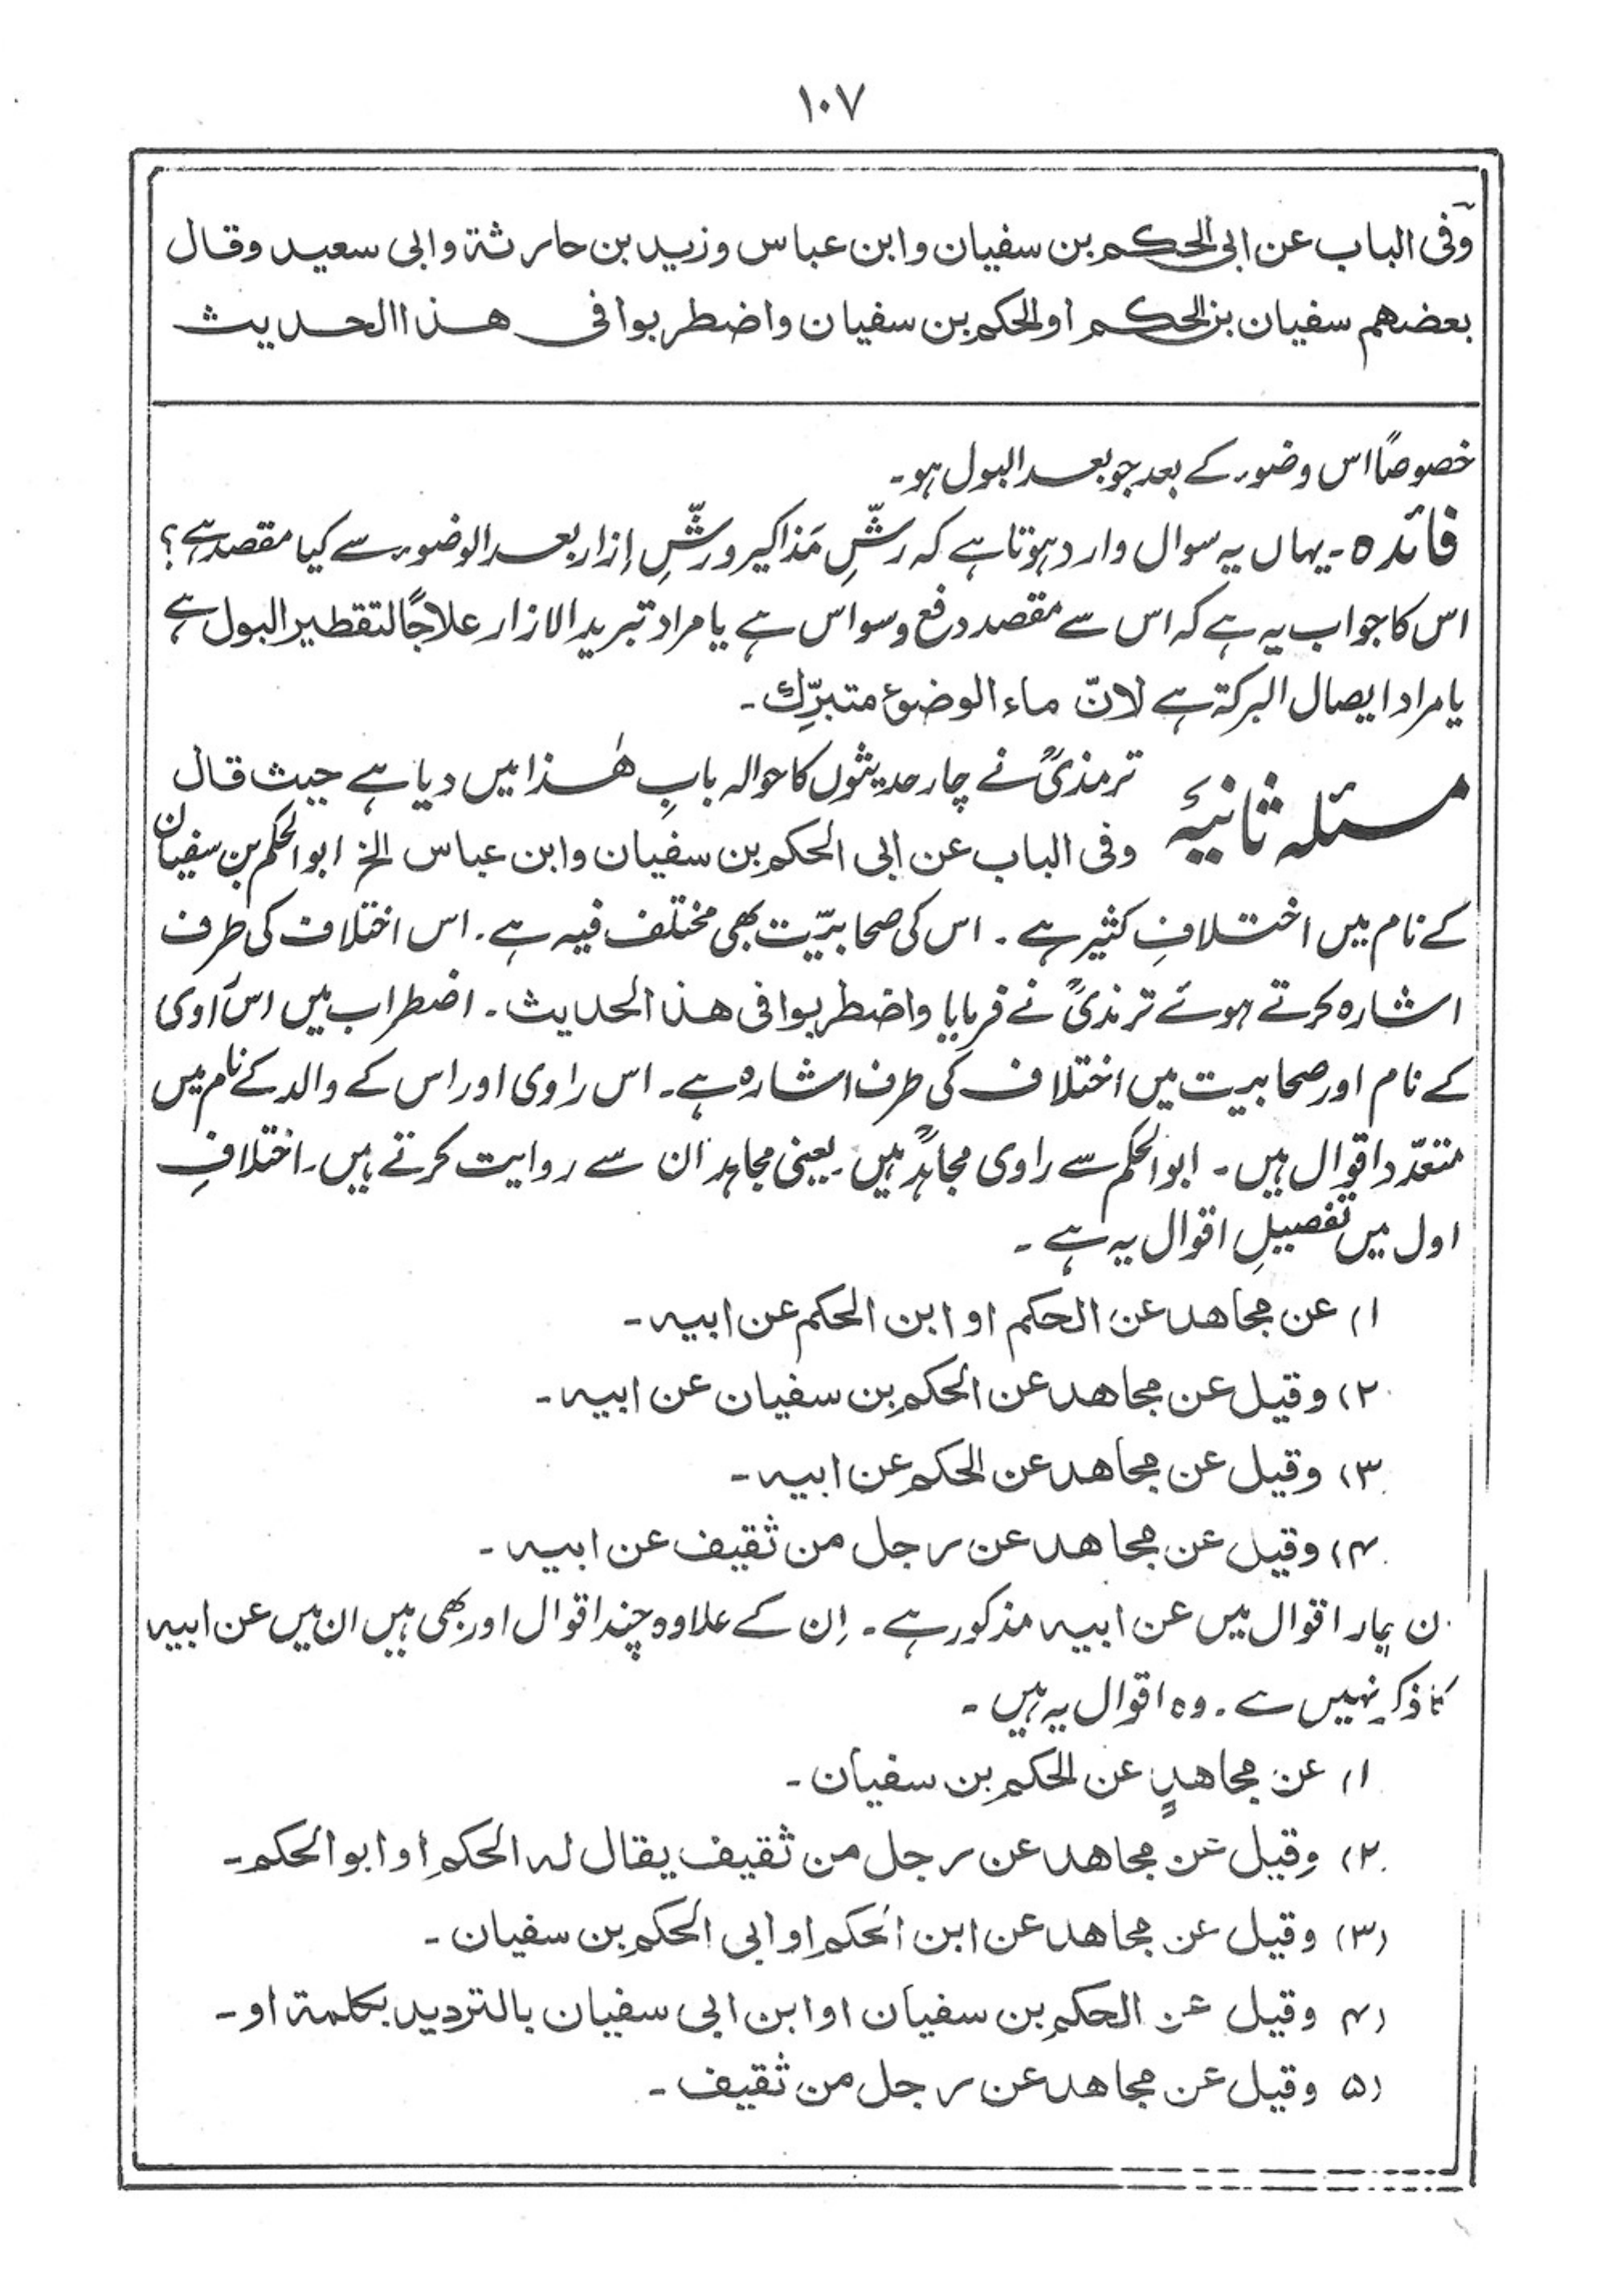 ۱۰۷
وفی الباب عن ابی الحکم بن سفیان وابن عباس وزید بن حارثة وابی سعید وقال
بعضهم سفیان بن الحکم او الحکم بن سفیان واضطربوا فی هذا الحدیث
خصوصاً اس وضوء کے بعد جو بعد البول ہو۔
فائدہ۔ یہاں یہ سوال وارد ہوتا ہے کہ رشِّ مَذاکیر و رشِّ اِزار بعد الوضوء سے کیا مقصد ہے؟
اس کا جواب یہ ہے کہ اس سے مقصد دفع وسواس ہے یا مراد تبرید الازار علاجًا لتقطیر البول ہے
یا مراد ایصال البرکة ہے لانّ ماء الوضوء متبرِّك۔
مسئلہ ثانیۂ
ترمذیؒ نے چار حدیثوں کا حوالہ بابِ ھٰذا میں دیا ہے حیث قال
وفی الباب عن ابی الحکم بن سفیان وابن عباس الخ ابوالحکم بن سفیان
کے نام میں اختلافِ کثیر ہے۔ اس کی صحابیّت بھی مختلف فیہ ہے۔ اس اختلاف کی طرف
اشارہ کرتے ہوئے ترمذیؒ نے فرمایا واضطربوا فی هذا الحدیث۔ اضطراب میں اس راوی
کے نام اور صحابیت میں اختلاف کی طرف اشارہ ہے۔ اس راوی اور اس کے والد کے نام میں
متعدّد اقوال ہیں۔ ابوالحکم سے راوی مجاہدؒ ہیں یعنی مجاہد ان سے روایت کرتے ہیں۔ اختلافِ
اول میں تفصیلِ اقوال یہ ہے۔
۱) عن مجاهد عن الحکم او ابن الحکم عن ابیه۔
۲) وقیل عن مجاهد عن الحکم بن سفیان عن ابیه۔
۳) وقیل عن مجاهد عن الحکم عن ابیه۔
۴) وقیل عن مجاهد عن رجل من ثقیف عن ابیه۔
ان چار اقوال میں عن ابیه مذکور ہے۔ اِن کے علاوہ چند اقوال اور بھی ہیں ان میں عن ابیه
کا ذکر نہیں ہے۔ وہ اقوال یہ ہیں۔
۱) عن مجاهدٍ عن الحکم بن سفیان۔
۲) وقیل عن مجاهد عن رجل من ثقیف یقال له الحکم او ابو الحکم۔
(۳) وقیل عن مجاهد عن ابن الحکم او ابی الحکم بن سفیان۔
(۴ وقیل عن الحکم بن سفیان او ابن ابی سفیان بالتردید بکلمة او۔
(۵ وقیل عن مجاهد عن رجل من ثقیف۔